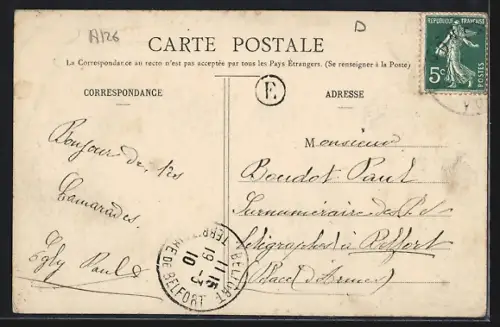 A126
D
CARTE POSTALE
La Correspondance au recto n'est pas acceptée par tous les Pays Étrangers. (Se renseigner à la Poste)
E
REPUBLIQUE FRANÇAISE
5c
POSTES
CORRESPONDANCE
Bonjour de tes
Camarades.
Egly Paul
ADRESSE
Monsieur
Boudot Paul
Surnuméraire des P. et
télégraphes à Belfort
(Place d'Armes)
BELFORT
11 15
19 - 3
10
TERRRE DE BELFORT